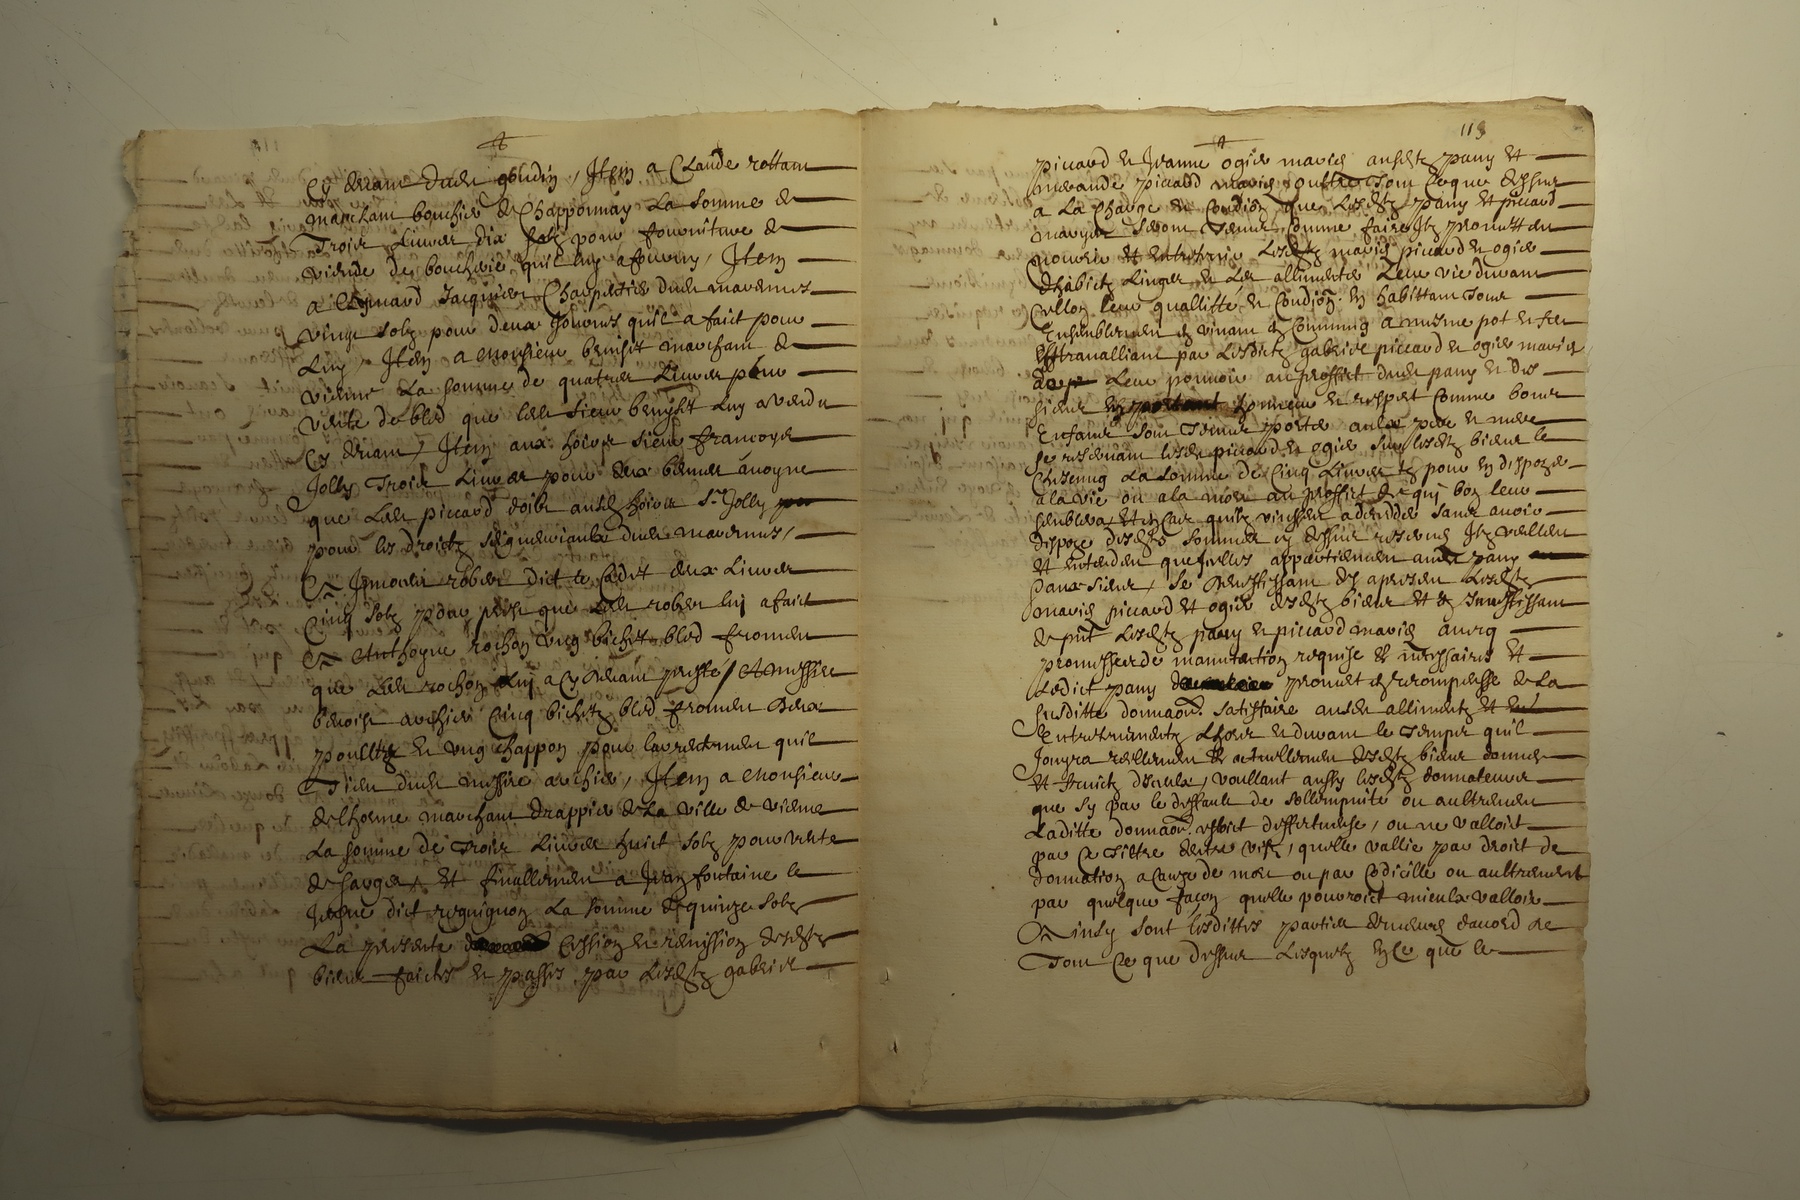 Cy devant dudit goudin, Item a Claude rottant
marchant bouchier de Chapponnay la somme de
Trois livres dix solz pour fourniture de
viende de boucherie quil luy a fourny, Item
a Aymard Jacquier Charpentier dudit marennes
vingt solz pour deux journes quil a faict pour
luy, Item a Monsieur benoist marchant de
vienne la somme de quatres livres pour
vente de bled que ledit sieur benoist luy a vendu
Cy devant, Item aux hoirs sieur francoys
Jolly Trois livres pour deux bennes avoyne
que ledit piccard doibt ausditz hoirs Sr Jolly
pour les droictz seigneuriaulx dudit marennes,
A robert dict le Cadet deux livres
Cinq solz pour que ledit robert luy a faict
A Anthoyne rochon ung bichet bled froment
que ledit rochon luy a Cy devant presté, A messire
benoist archier Cinq bichetz bled froment Deux
poulletz et ung chappon pour quil
Tient dudit messire archier, Item a Monsieur
delhorme marchant drappier de la ville de vienne
la somme de Trois livres huict solz pour vente
de sarges, Et finallement a Jean fontaine le
Jeune dict roguignon la somme de quinze solz
La presente cession et remission desditz
biens faictes et passes par lesditz gabriel
113
piccard et Jeanne ogier maries ausditz pany et
piccard maries oultre Tout ce que dessus
a la Charge et Condition que lesditz pany et piccard
maries seront Tenus comme faire Ilz promettent
nourrir et entretenir lesditz maries piccard et ogier
dhabictz linges et les allimenter leur vie durant
sellon leur quallitté et Condition en habittant Tous
Ensemblement et vivant en Commung a mesme pot et feu
Et travalliant par lesditz gabriel piccard et ogier maries
de leur pouvoir au proffict dudit pany et des
siens honneur et respect comme bons
Enfants sont Tenus porter aulx pere et mere
Se reservant lesditz piccard et ogier sur lesditz biens le
Chescung la somme de Cinq livres tz pour en dispozer
a la vie ou a la mort au proffict de qui bon leur
semblera Et en Cas quilz vinssent a deceder sans avoir
dispozé desdittes sommes cy dessus reservees Ilz veullent
et entendent quicelles appartiennent audit pany
Et aux siens, Se desvestissant des apresent lesditz
maries piccard et ogier desditz biens et en Investissant
de pnt lesditz pany et piccard maries avecq
promesses de manutention requise et necessaires Et
ledict pany promet en recompense de la
susditte donnaon satisfaire ausdit alliments et
Entretenements et durant le Temps quil
Jouyra reellement et actuellement desditz biens donnes
Et fruictz diceulx, voullant aussy lesditz donnateurs
que sy par le deffault de sollempnité ou aultrement
laditte donnaon estoit deffectueuse, ou ne valloit
par ce Tiltre dentre vifz, quelle vallie par droit de
donnation a Cause de mort ou par Codicille ou aultrement
par quelque façon quelle pourroit mieulx valloir
Ainsy sont lesdittes parties demeures dacord de
Tout Ce que dessus lesquelz en ce que le